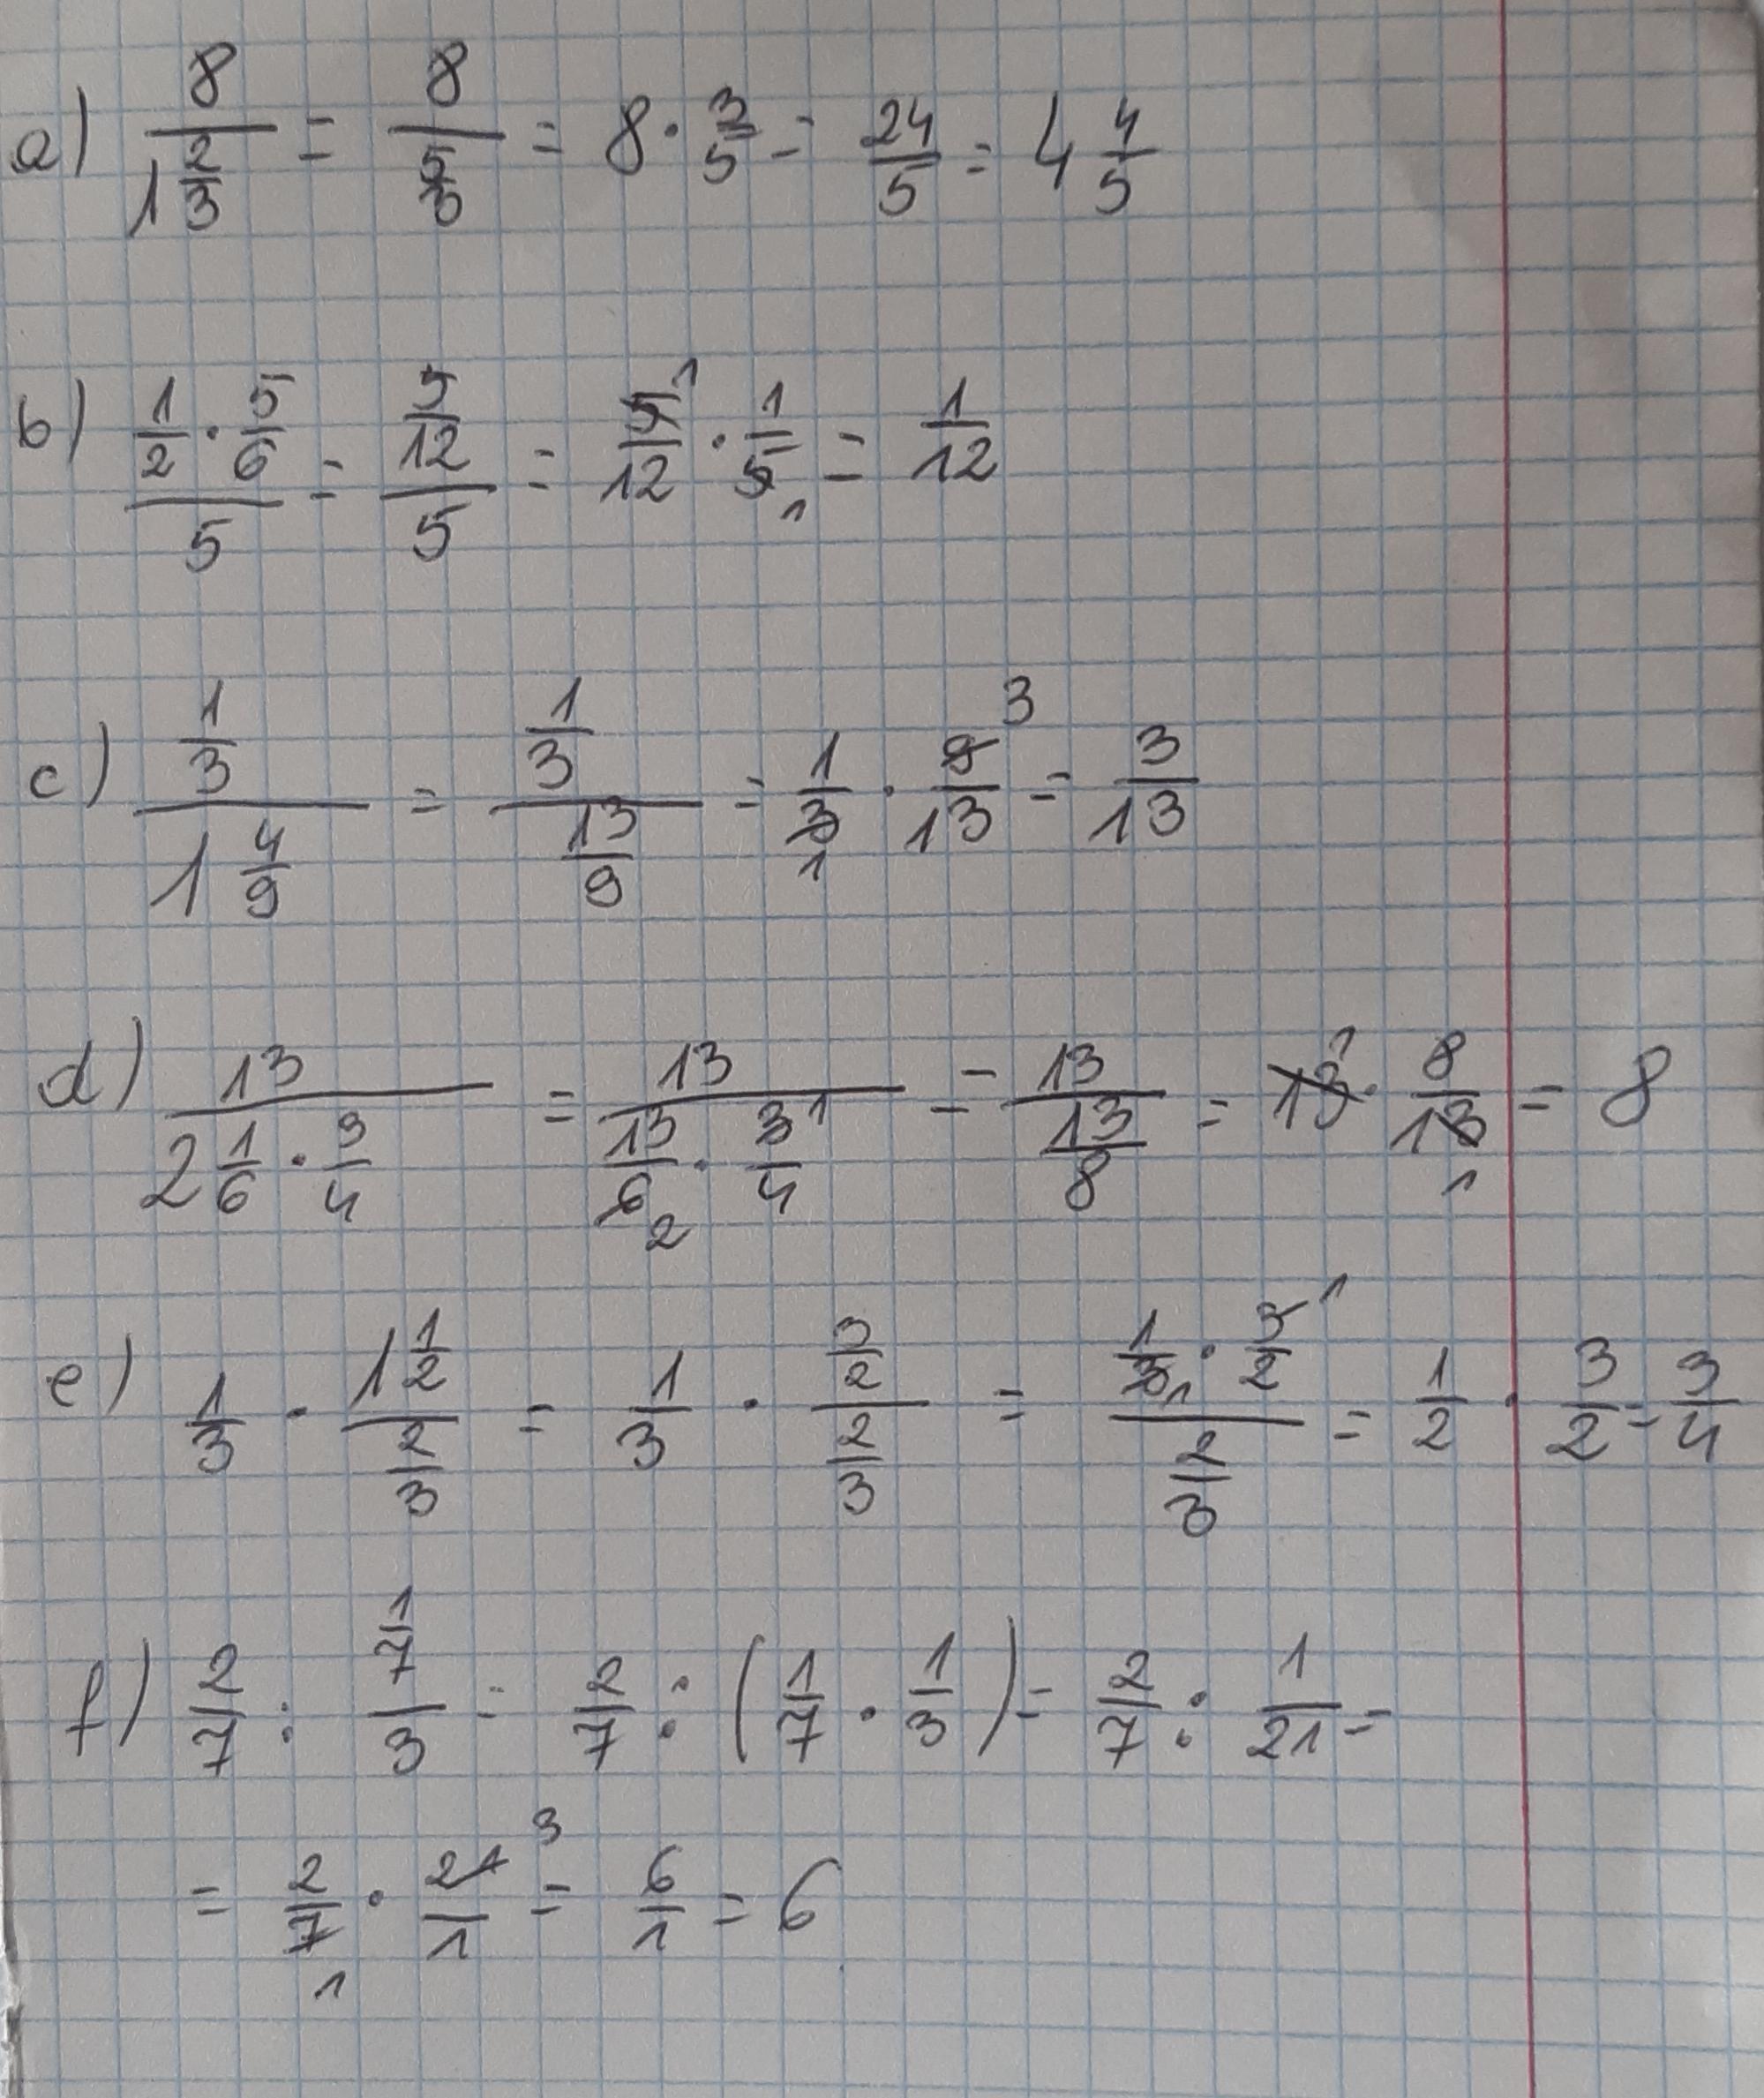 a) 8/(1 2/3) = 8/(5/3) = 8 · 3/5 = 24/5 = 4 4/5
b) (1/2 · 5/6)/5 = (5/12)/5 = 5/12 1 · 1/5 1 = 1/12
c) (1/3)/(1 4/9) = (1/3)/(13/9) = 1/3 1 · 9/13 3 = 3/13
d) 13/(2 1/6 · 3/4) = 13/(13/6 2 · 3/4 1) = 13/(13/8) = 13 1 · 8/13 1 = 8
e) 1/3 · (1 1/2)/(2/3) = 1/3 · (3/2)/(2/3) = (1/3 1 · 3/2 1)/(2/3) = 1/2 · 3/2 = 3/4
f) 2/7 : (1/7)/3 = 2/7 : (1/7 · 1/3) = 2/7 : 1/21 =
= 2/7 1 · 21/1 3 = 6/1 = 6